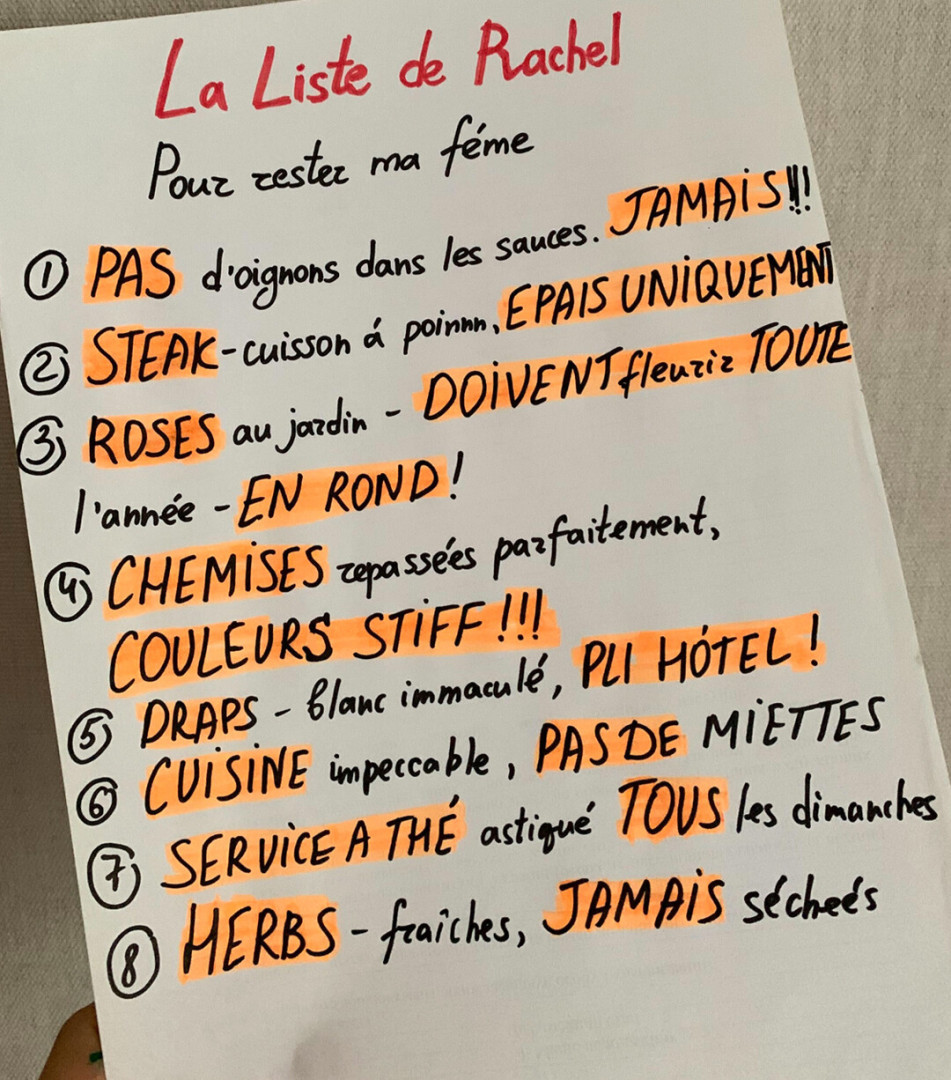 La Liste de Rachel
Pour rester ma féme
① PAS d'oignons dans les sauces. JAMAIS!!!
② STEAK-cuisson á poinnn, EPAIS UNIQUEMENT
③ ROSES au jardin - DOIVENT fleurir TOUTE
l'année - EN ROND!
④ CHEMISES repassées parfaitement,
COULEURS STIFF!!!
⑤ DRAPS - blanc immaculé, PLI HÓTEL!
⑥ CUISINE impeccable, PAS DE MIETTES
⑦ SERVICE A THÉ astiqué TOUS les dimanches
⑧ HERBS - fraîches, JAMAIS sécheés